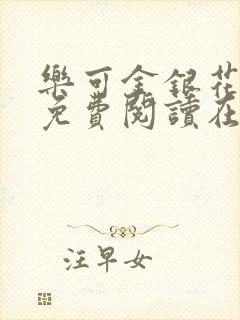 樂可金銀花
免費閱讀在
汪早女